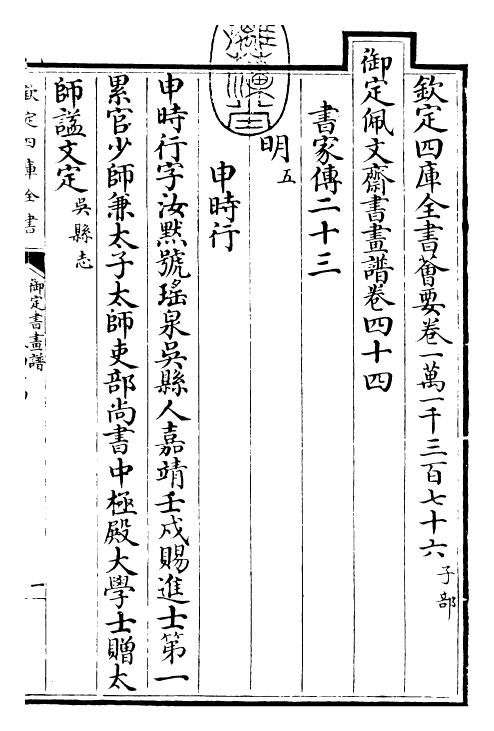 欽定四庫全書薈要卷一萬一千三百七十六 子部
御定佩文齋書畫譜卷四十四
書家傳二十三
明五
申時行
申時行字汝黙號瑤泉吳縣人嘉靖壬戌賜進士第一
累官少師兼太子太師吏部尚書中極殿大學士贈太
師諡文定 吳縣志
欽定四庫全書
御定書畫譜
一